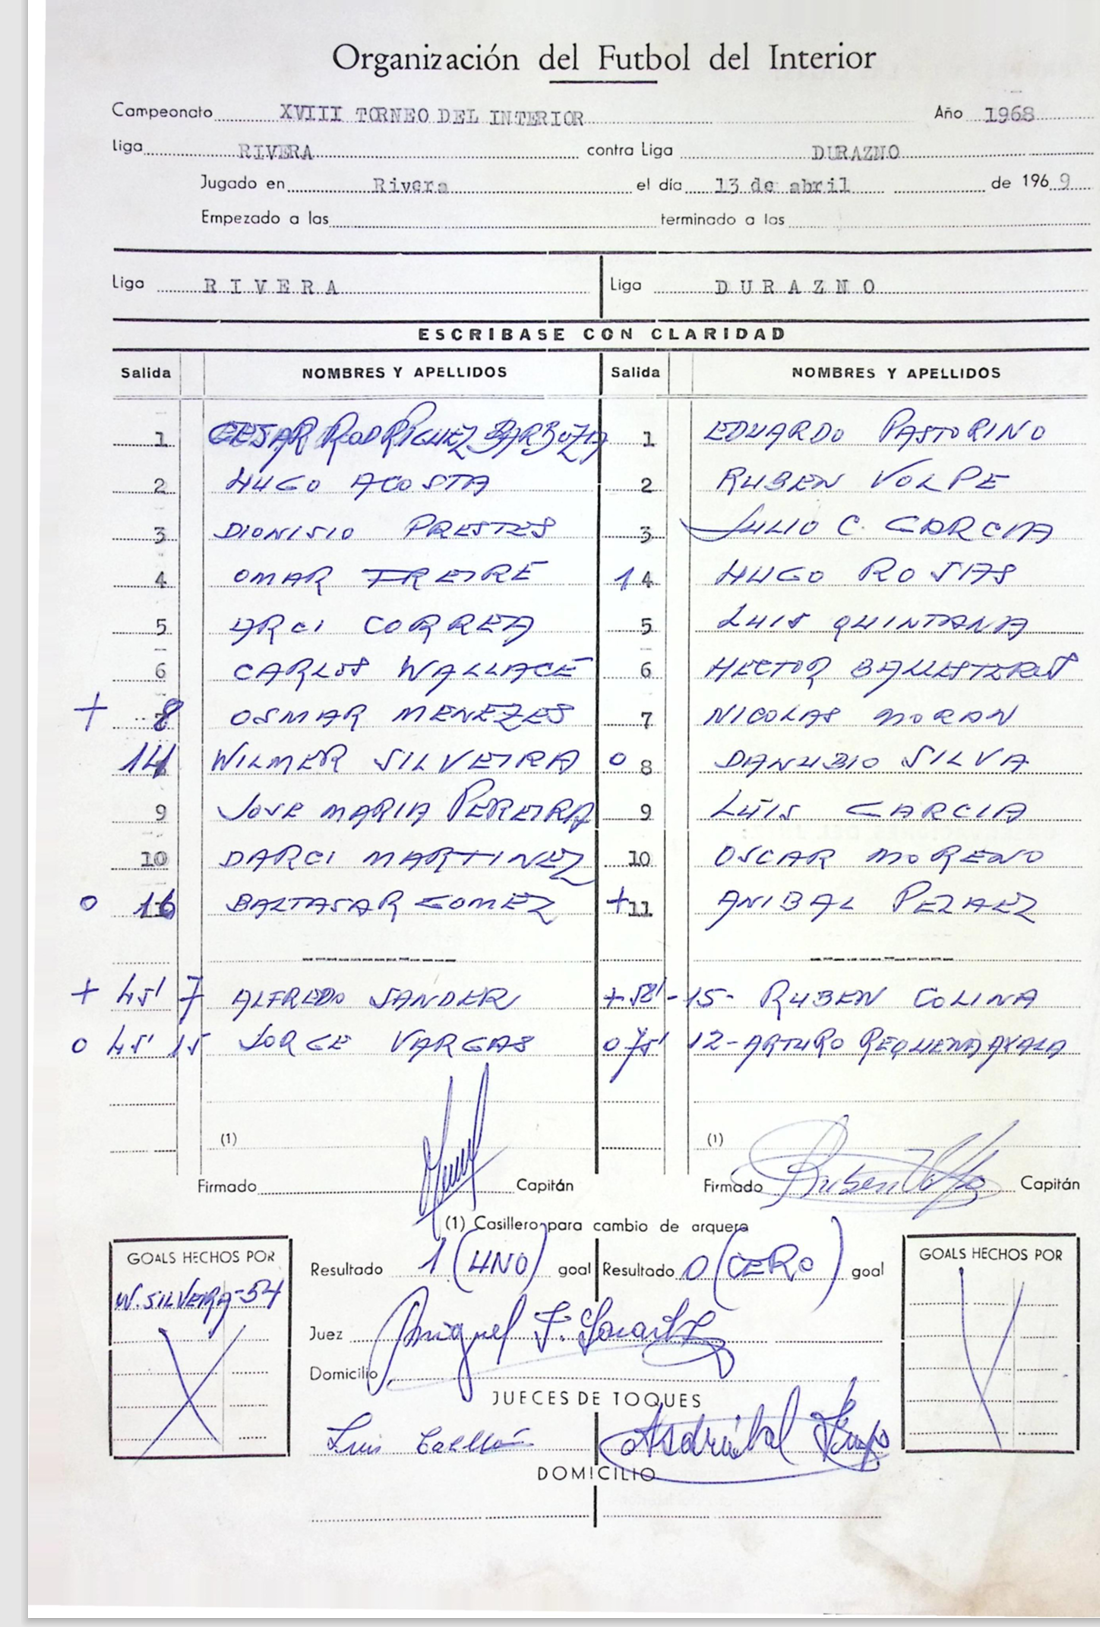 Organización del Futbol del Interior
Campeonato XVIII TORNEO DEL INTERIOR Año 1968
Liga RIVERA contra Liga DURAZNO
Jugado en Rivera el día 13 de abril de 1969
Empezado a las terminado a las
Liga RIVERA Liga DURAZNO
ESCRIBASE CON CLARIDAD
Salida NOMBRES Y APELLIDOS Salida NOMBRES Y APELLIDOS
1 CESAR RODRÍGUEZ BARBOZA 1 EDUARDO PASTORINO
2 HUGO ACOSTA 2 RUBEN VOLPE
3 DIONISIO PRESTES 3 JULIO C. GARCIA
4 OMAR FREIRE 14 HUGO ROSIAS
5 ARCI CORREA 5 LUIS QUINTANA
6 CARLOS WALLACE 6 HECTOR BALLESTEROS
+ 8 OSMAR MENEZES 7 NICOLAS MORAN
14 WILMER SILVEIRA 0 8 DANUBIO SILVA
9 JOSE MARIA PEREIRA 9 LUIS GARCIA
10 DARCI MARTINEZ 10 OSCAR MORENO
0 16 BALTASAR GOMEZ + 11 ANIBAL PERAEZ
+ 45' 7 ALFREDO SANDER + 52' -15- RUBEN COLINA
0 45' 15 JORGE VARGAS 0 75' 12- ARTURO REQUENA AYALA
(1) (1)
Firmado Capitán Firmado Ruben Volpe Capitán
(1) Casillero para cambio de arquero
GOALS HECHOS POR Resultado 1 (UNO) goal Resultado 0 (CERO) goal GOALS HECHOS POR
W. SILVEIRA-54
Juez Miguel F.
Domicilio
JUECES DE TOQUES
Luis Asdrúbal
DOMICILIO